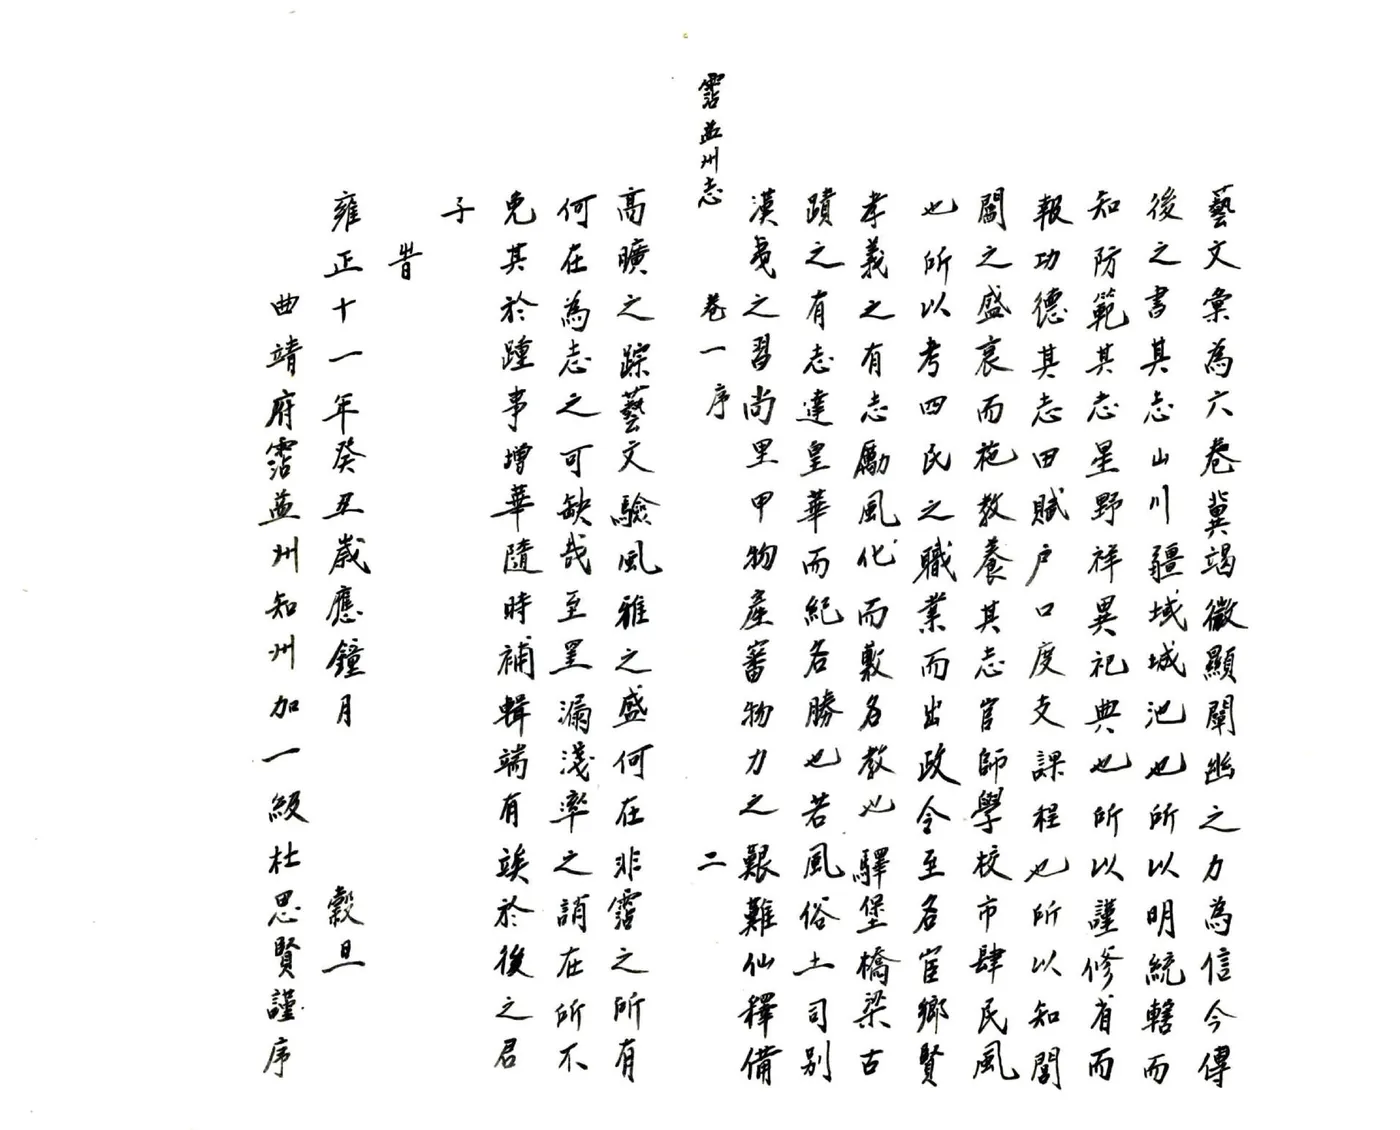 藝文彙為六卷冀竭微顯闡幽之力為信今傳
後之書其志山川疆域城池也所以明統轄而
知防範其志星野祥異祀典也所以謹修省而
報功德其志田賦户口度支課程也所以知閭
閻之盛衰而施教養其志官師學校市肆民風
也所以考四民之職業而出政令至名宦鄉賢
孝義之有志勵風化而敷名教也驛堡橋梁古
蹟之有志達皇華而紀名勝也若風俗土司别
漢夷之習尚里甲物產審物力之艱難仙釋備
霑益州志
卷一序
二
高曠之踪藝文驗風雅之盛何在非霑之所有
何在為志之可缺哉至罣漏淺率之誚在所不
免其於踵事增華隨時補輯端有竢於後之君
子
旹
雍正十一年癸丑歲應鐘月 穀旦
曲靖府霑益州知州加一級杜思賢謹序